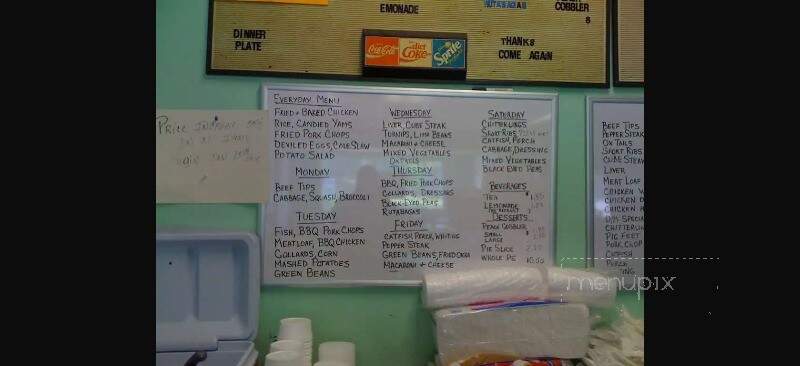 EMONADE
COBBLER
DINNER
PLATE
Coca-Cola
diet
Coke
Sprite
THANKS
COME AGAIN
EVERYDAY MENU
FRIED & BAKED CHICKEN
RICE, CANDIED YAMS
FRIED PORK CHOPS
DEVILED EGGS, COLE SLAW
POTATO SALAD
MONDAY
BEEF TIPS
CABBAGE, SQUASH, BROCCOLI
TUESDAY
FISH, BBQ PORK CHOPS
MEATLOAF, BBQ CHICKEN
COLLARDS, CORN
MASHED POTATOES
GREEN BEANS
WEDNESDAY
LIVER, CUBE STEAK
TURNIPS, LIMA BEANS
MACARONI & CHEESE
MIXED VEGETABLES
OXTAILS
THURSDAY
BBQ, FRIED PORK CHOPS
COLLARDS, DRESSING
BLACK EYED PEAS
RUTABAGAS
FRIDAY
CATFISH, PERCH, WHITING
PEPPER STEAK
GREEN BEANS, FRIED OKRA
MACARONI & CHEESE
SATURDAY
CHITTERLINGS
SHORT RIBS
CATFISH, PERCH
CABBAGE, DRESSING
MIXED VEGETABLES
BLACK EYED PEAS
BEVERAGES
TEA
LEMONADE
DESSERTS
PEACH COBBLER
SMALL
LARGE
PIE SLICE
WHOLE PIE 10.00
PRICE INCREASE
BEEF TIPS
PEPPER STEAK
OX TAILS
SHORT RIBS
CUBE STEAK
LIVER
MEAT LOAF
CHICKEN
CHICKEN
CHICKEN
SPECIAL
CHITTERLIN
PIG FEET
PORK CHOP
CATFISH
PERCH
menupix